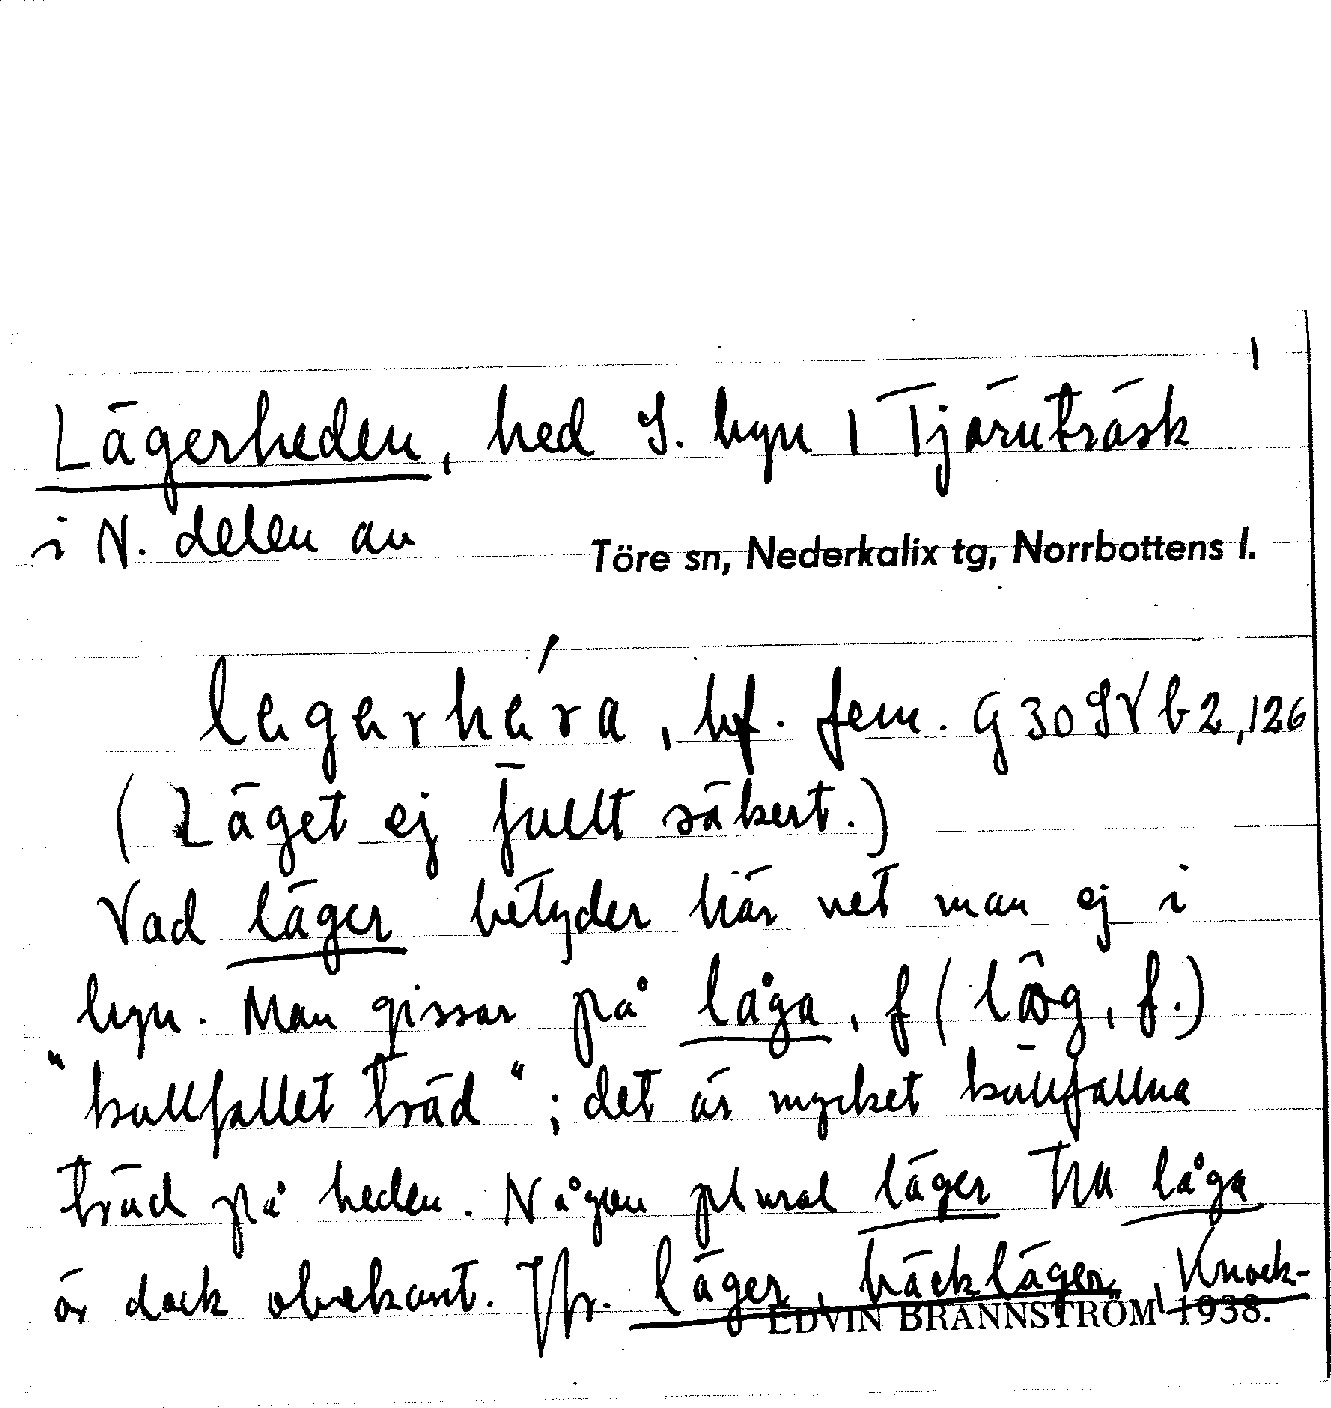 1
Lägerheden, hed S. byn 1 Tjärnträsk
i N. delen av Töre sn, Nederkalix tg, Norrbottens l.
(Läget ej fullt säkert.)
Vad läger betyder här vet man ej i
byn. Man gissar på låga, f (låg, f.)
"kullfallet träd"; det är mycket kullfallna
träd på heden. Någon plural läger till låga
är dock obekant. Jfr. läger, bäckläger, Knock-
EDVIN BRÄNNSTRÖM 1938.